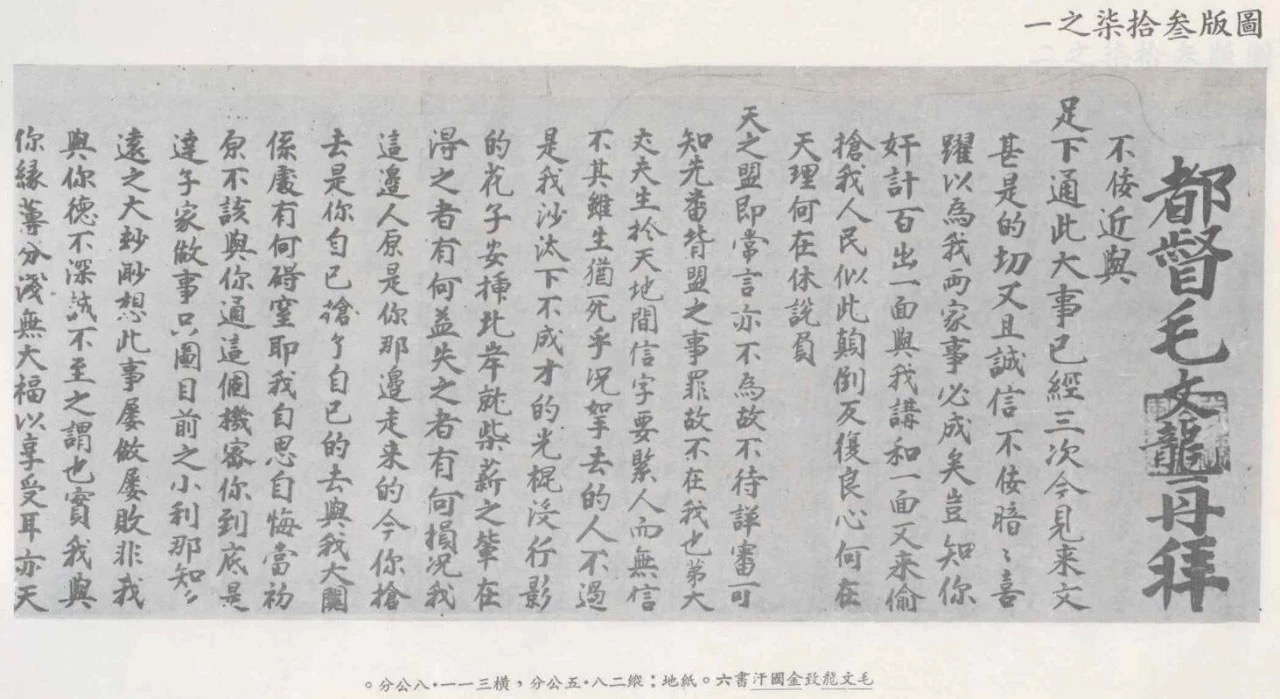 圖版叁拾柒之一
都督毛文龍再拜
不佞近與
足下通此大事已經三次今見来文
甚是的切又且誠信不佞暗〻喜
躍以為我両家事必成矣豈知你
奸計百出一面與我講和一面又来偷
搶我人民似此顛倒反復良心何在
天理何在休説負
天之盟即常言亦不為故不待詳審可
知先番背盟之事罪故不在我也第大
丈夫生扵天地間信字要緊人而無信
不其雖生猶死乎况拏去的人不過
是我沙汰下不成才的光棍沒行影
的花子安揷此岸就柴薪之輩在
淂之者有何益失之者有何損况我
這邊人原是你那邊走来的今你搶
去是你自已搶了自已的去與我大關
係處有何碍窒耶我自思自悔當初
原不該與你通這個機宻你到底是
達子家做事只圖目前之小利那知〻
遠之大玅眇想此事屢做屢敗非我
與你德不深誠不至之謂也實我與
你緣薄分淺無大福以享受耳亦天
毛文龍致金國汗書六。紙地：縱二八·五公分，橫三一一·八公分。